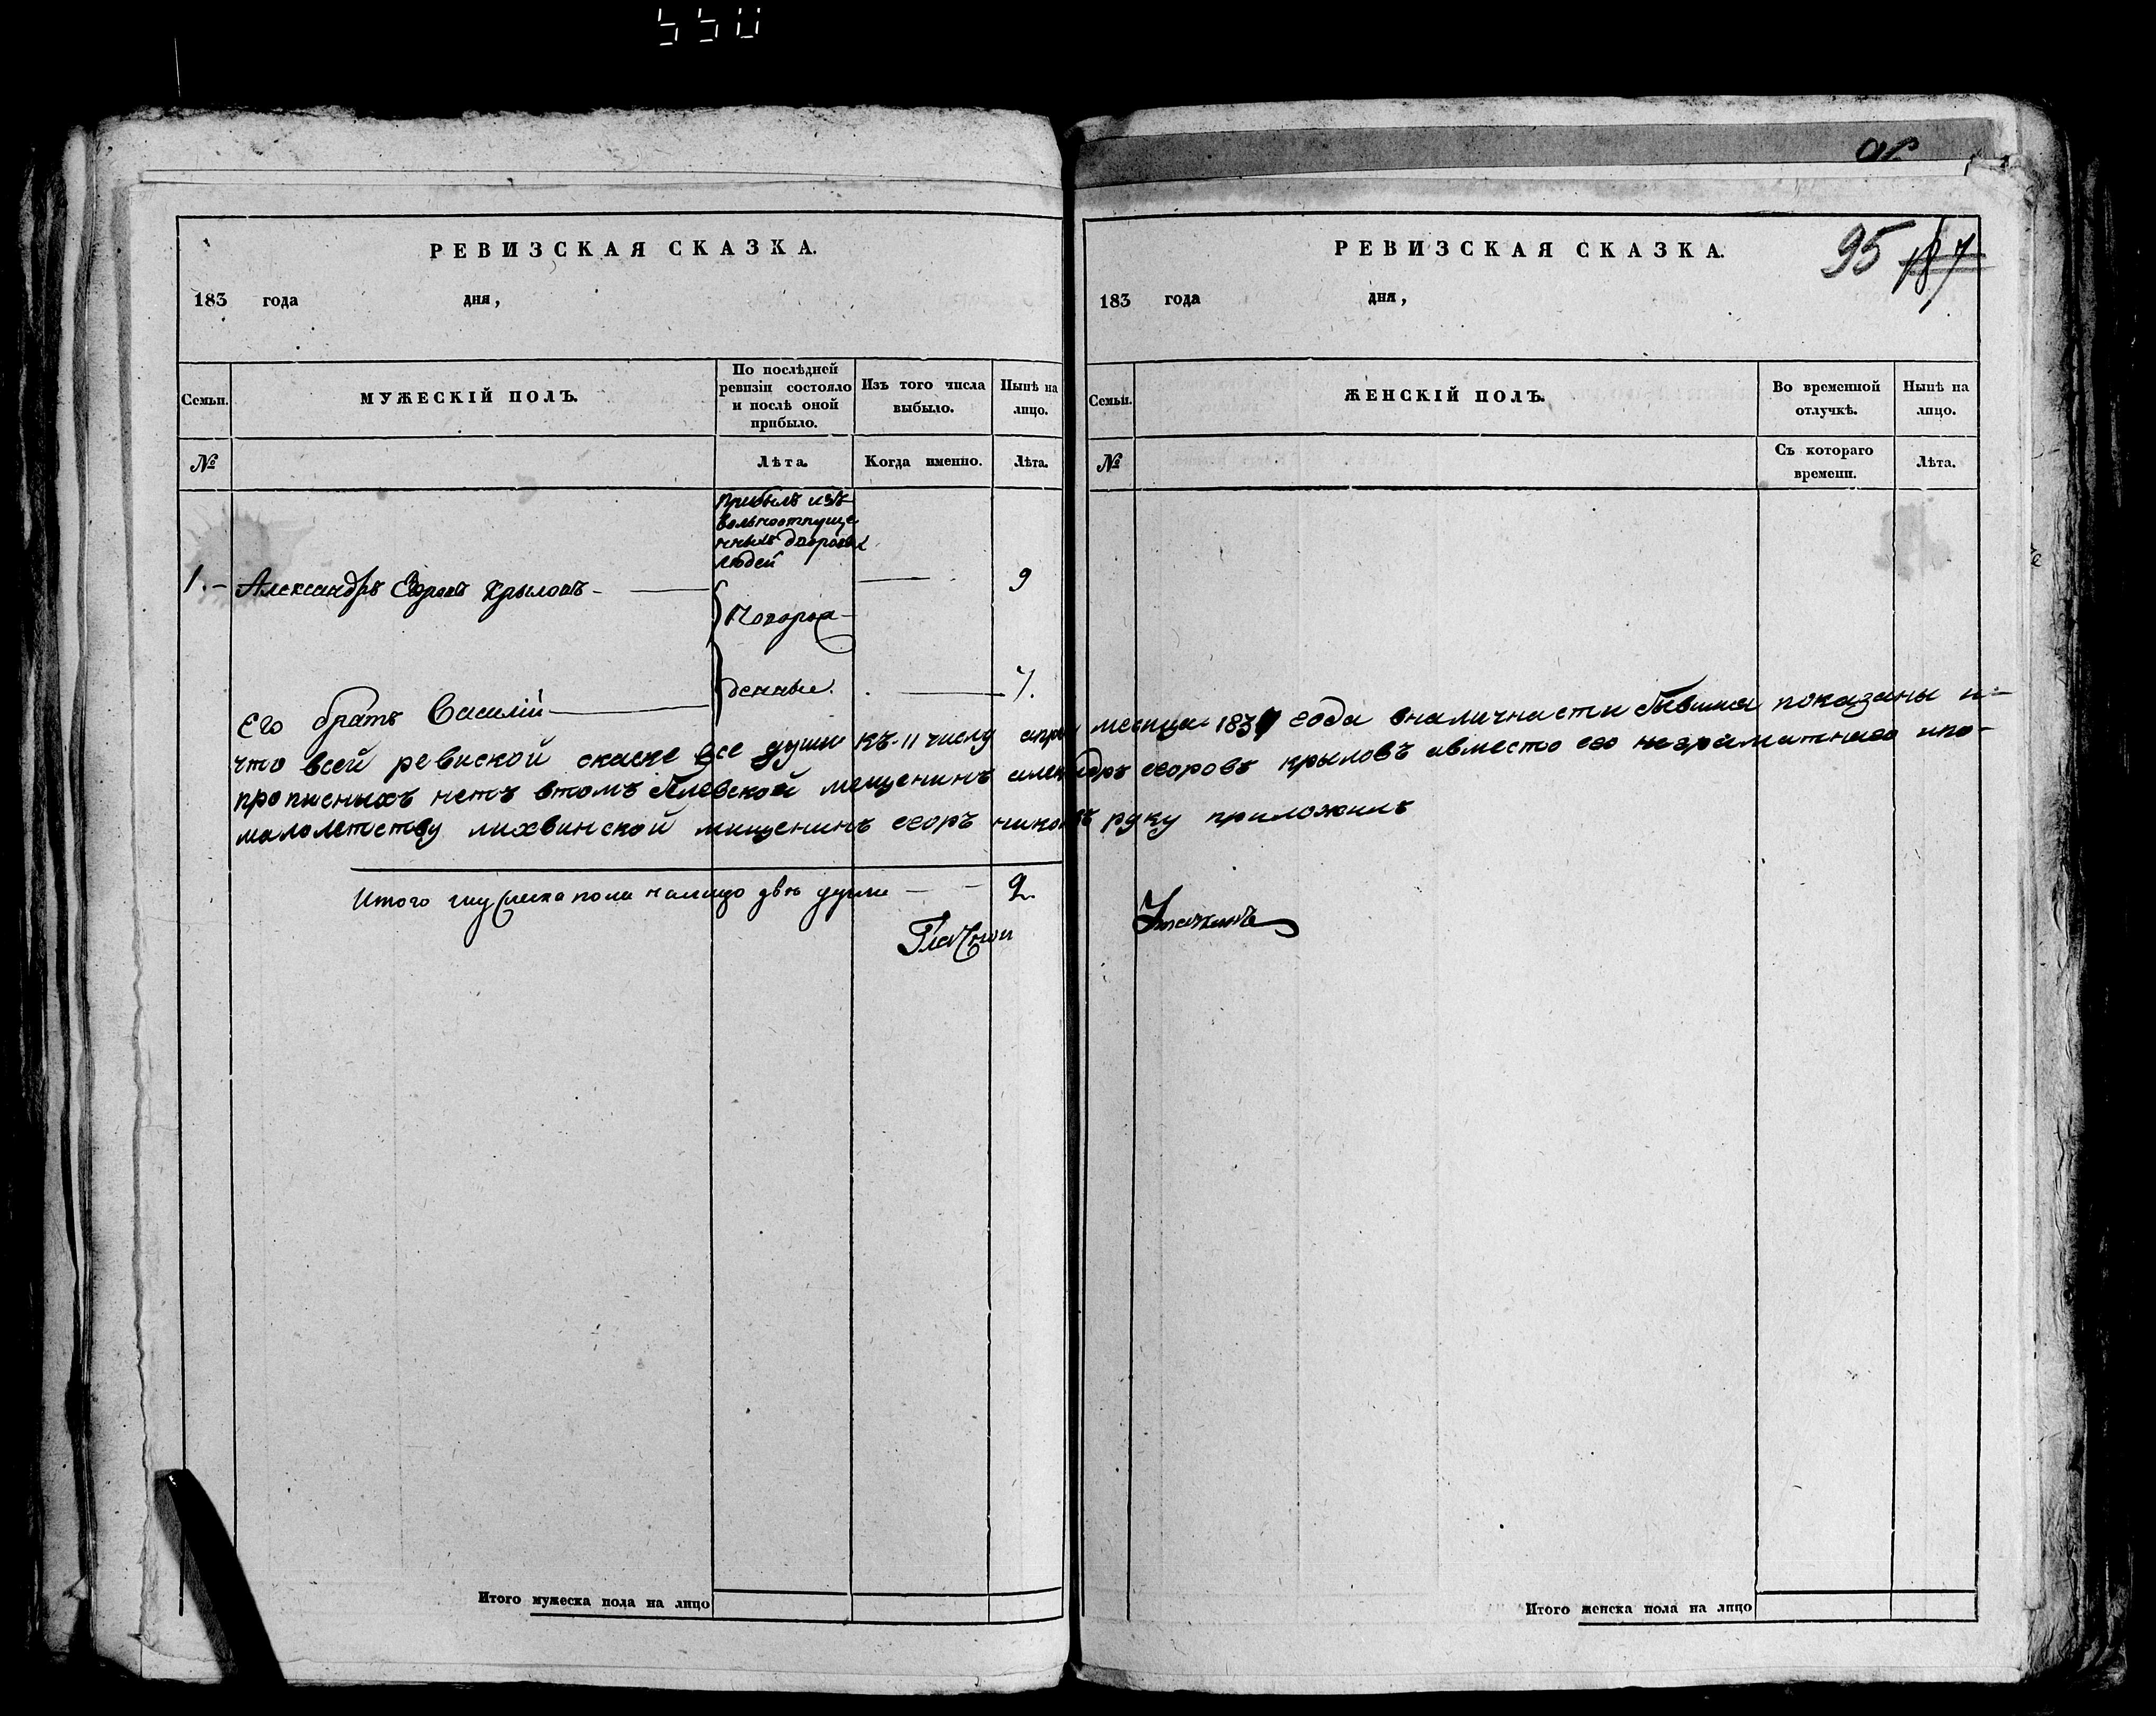 РЕВИЗСКАЯ СКАЗКА.
183 года дня,
Семьи. МУЖЕСКІЙ ПОЛЪ. По послѣдней ревизіи состояло и послѣ оной прибыло. Изъ того числа выбыло. Нынѣ на лицо.
№ Лѣта. Когда именно. Лѣта.
прибылъ изъ
вольноотпуще
нныхъ дворовыхъ
людей
1. Александръ Егоровъ Крыловъ 9
Новорож
денные.
Его братъ Василій 7.
что всей ревиской скаске все души къ 11 числу апре месяца 1837 года вналичнасти бывшия показаны и
прописныхъ нетъ втомъ мещенинъ александръ егоровъ крыловъ авместо его неграматнаго ипо-
малолетству лихвинской мищенинъ егоръ руку приложилъ
Итого мужеска пола налицо двѣ души 2.
Итого мужеска пола на лицо
95 187
РЕВИЗСКАЯ СКАЗКА.
183 года дня,
Семьи. ЖЕНСКІЙ ПОЛЪ. Во временной отлучкѣ. Нынѣ на лицо.
№ Съ котораго времени. Лѣта.
Итого женска пола на лицо